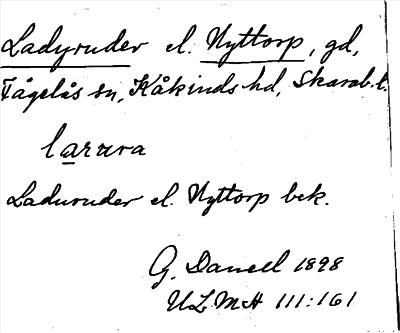 Ladyruder el. Nyttorp, gd,
Fågelås sn, Kåkinds hd, Skarab. l.
larura
Laduruder el. Nyttorp bek.
G. Danell 1898
ULMA 111:161